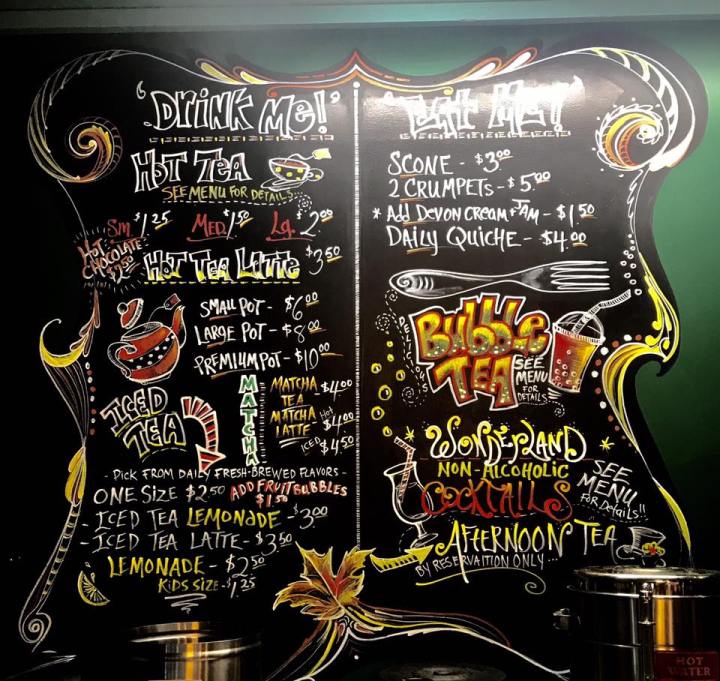 "DRINK ME!"
HOT TEA
SEE MENU FOR DETAILS...
Sm. $1.25 MED. $1.50 Lg. $2.00
HOT
CHOCOLATE
HOT TEA LATTE $3.50
SMALL POT - $6.00
LARGE POT - $8.00
PREMIUM POT - $10.00
ICED
TEA
MATCHA
MATCHA
TEA - $4.00
MATCHA
LATTE - Hot $4.00
ICED $4.50
- PICK FROM DAILY FRESH-BREWED FLAVORS -
ONE SIZE $2.50 ADD FRUIT BUBBLES
$1.50
- ICED TEA LEMONADE - $3.00
- ICED TEA LATTE - $3.50
LEMONADE - $2.50
KIDS SIZE - $1.25
"EAT ME!"
SCONE - $3.00
2 CRUMPETS - $5.00
* Add DEVON CREAM + JAM - $1.50
DAILY QUICHE - $4.00
DELICIOUS
BUBBLE
TEA
SEE
MENU
FOR
DETAILS
WONDERLAND
NON-ALCOHOLIC
COCKTAILS
SEE
MENU
FOR Details!!
AFTERNOON TEA
BY RESERVAITION ONLY...
HOT
WATER